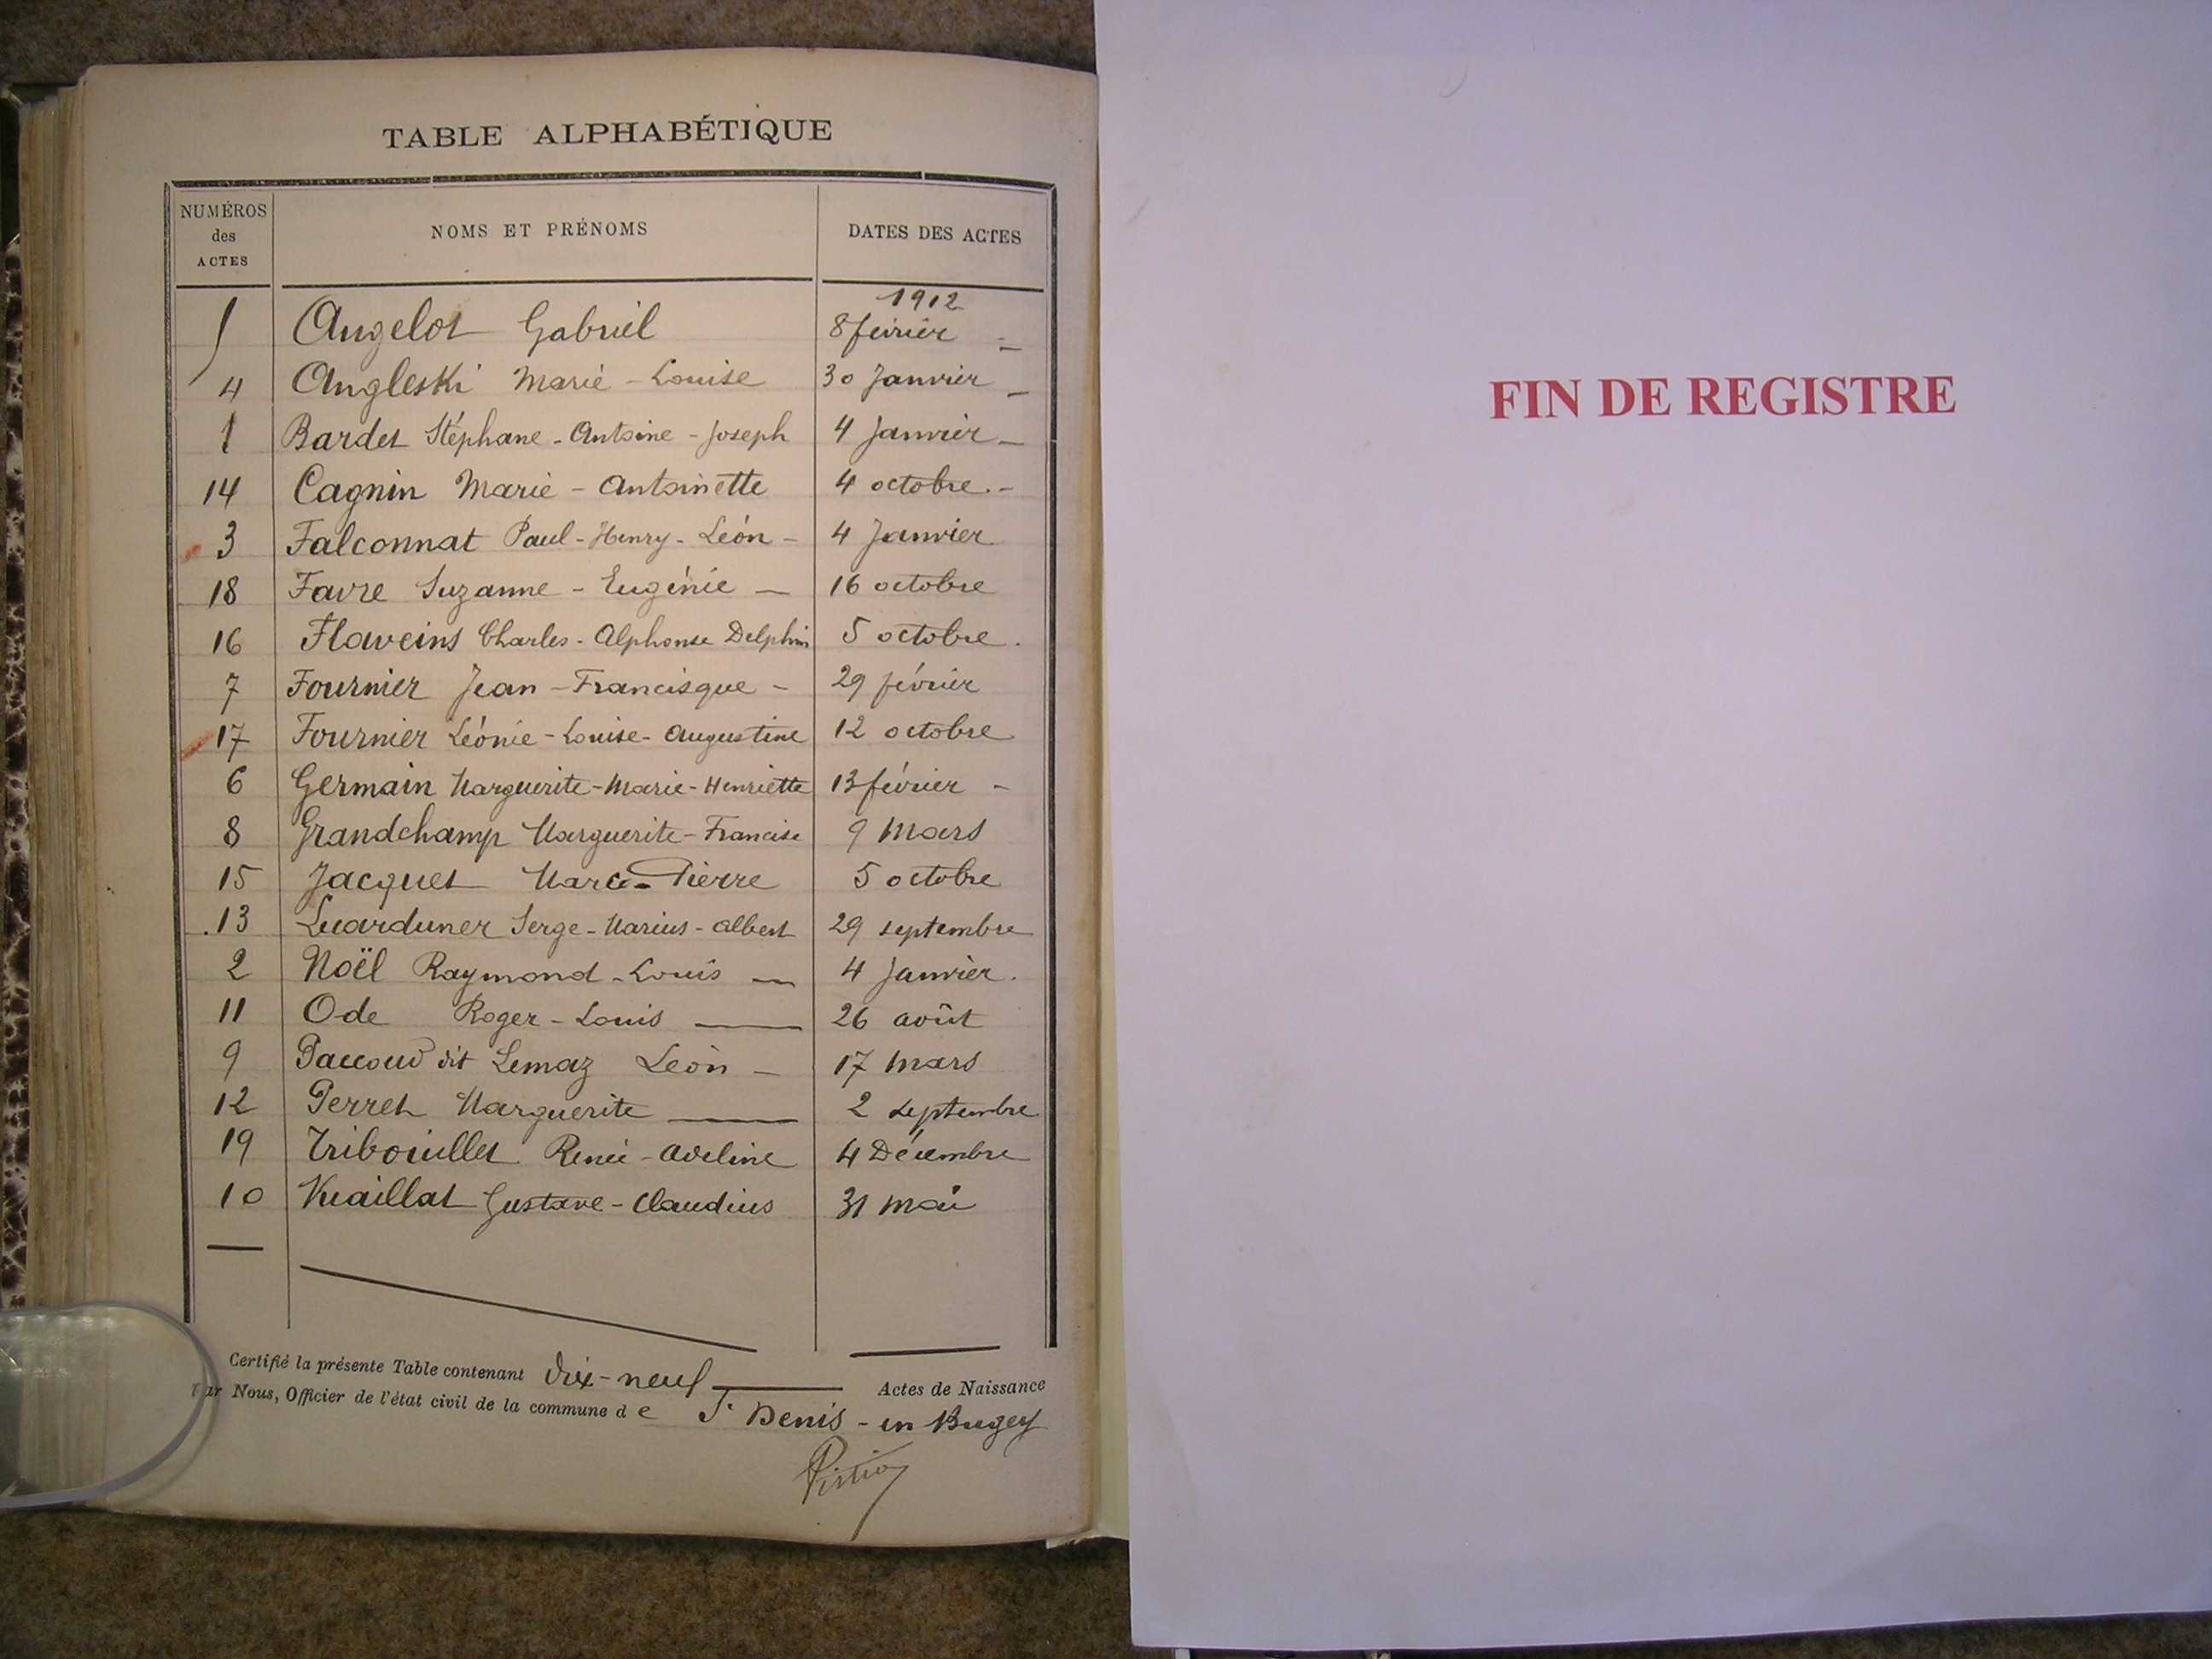 TABLE ALPHABÉTIQUE
NUMÉROS des ACTES NOMS ET PRÉNOMS DATES DES ACTES
1912
Angelot Gabriel 8 février
4 Angleski Marie-Louise 30 Janvier
1 Bardet Stéphane-Antoine-Joseph 4 Janvier
14 Cagnin Marie-Antoinette 4 octobre
3 Falconnat Paul-Henry-Léon 4 Janvier
18 Favre Suzanne-Eugénie 16 octobre
16 Flaveins Charles-Alphonse Delphin 5 octobre
7 Fournier Jean-Francisque 29 février
17 Fournier Léonie-Louise-Augustine 12 octobre
6 Germain Marguerite-Marie-Henriette 13 février
8 Grandchamp Marguerite-Francise 9 Mars
15 Jacquet Marc-Pierre 5 octobre
13 Serge-Marius-Albert 29 septembre
2 Noël Raymond-Louis 4 Janvier
11 Ode Roger-Louis 26 août
9 Paccoud dit Lemaz Léon 17 Mars
12 Perret Marguerite 2 septembre
19 Tribouillet Renée-Aveline 4 Décembre
10 Gustave-Claudius 31 mai
Certifié la présente Table contenant dix-neuf Actes de Naissance
Par Nous, Officier de l'état civil de la commune de St Denis-en Bugey
FIN DE REGISTRE